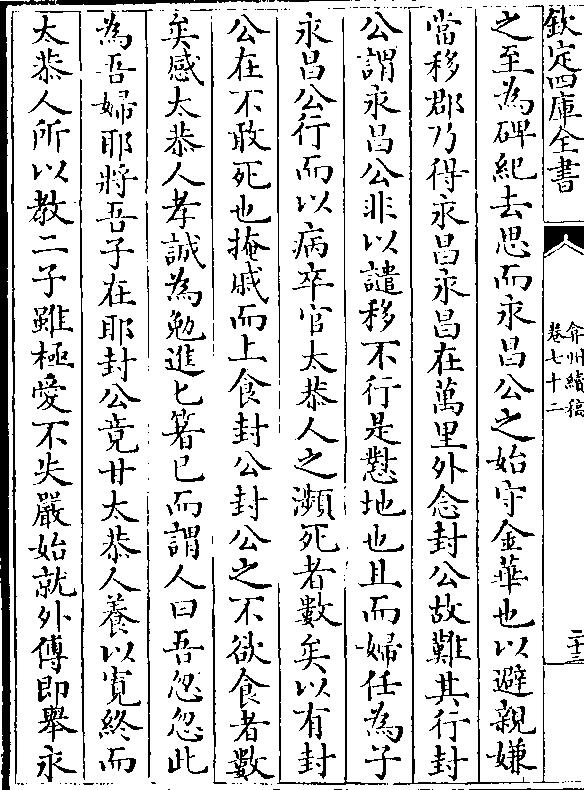 欽定四庫全書
弇州續稿
卷七十二
二十三
之至為碑紀去思而永昌公之始守金華也以避親嫌
當移郡乃得永昌永昌在萬里外念封公故難其行封
公謂永昌公非以譴移不行是懟地也且而婦任為子
永昌公行而以病卒官太恭人之瀕死者數矣以有封
公在不敢死也掩戚而上食封公封公之不欲食者數
矣感太恭人孝誠為勉進匕箸已而謂人曰吾忽忽此
為吾婦耶將吾子在耶封公竟甘太恭人養以寬終而
太恭人所以教二子雖極愛不失嚴始就外傅即舉永